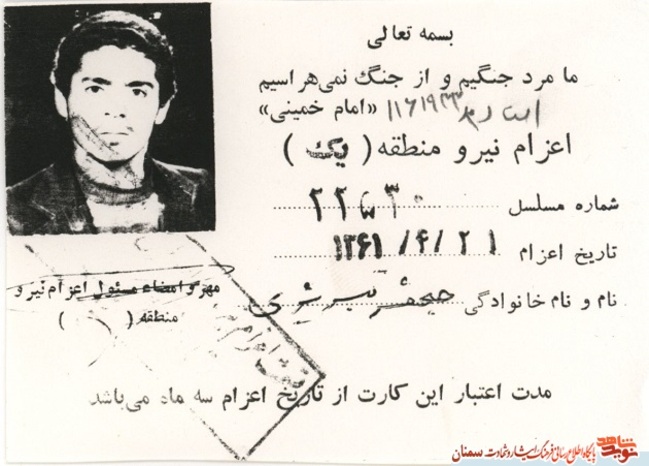 بسمه تعالی
ما مرد جنگیم و از جنگ نمی‌هراسیم
«امام خمینی»
اعزام نیرو منطقه ( یک )
شماره مسلسل
تاریخ اعزام ۱۳۶۱/۴/۲۱
نام و نام خانوادگی
مهر و امضاء مسئول اعزام نیرو
منطقه ( )
مدت اعتبار این کارت از تاریخ اعزام سه ماه می‌باشد
نوید شاهد
پایگاه اطلاع رسانی فرهنگ ایثار و شهادت سمنان